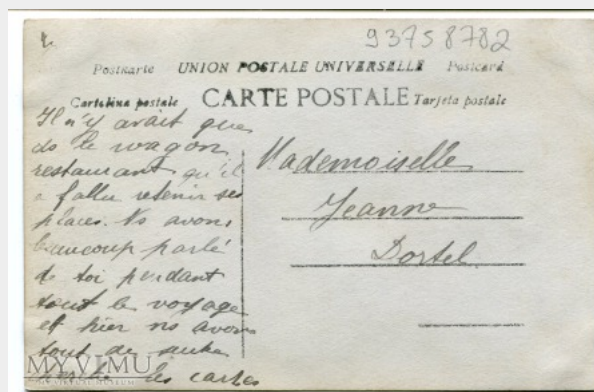 93758782
Postkarte UNION POSTALE UNIVERSELLE Postcard
Cartolina postale CARTE POSTALE Tarjeta postale
Il n'y avait que
ds le wagon
restaurant qu'il
a fallu retenir ses
places. Ns avons
beaucoup parlé
de toi pendant
tout le voyage
et hier ns avons
tout de suite
les cartes
Mademoiselle
Jeanne
Dortel
MYVIMU